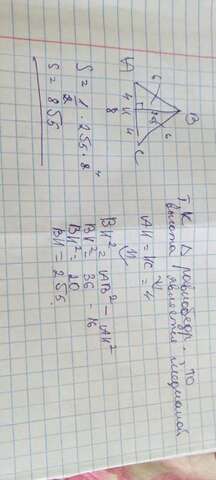 Т.К. Δ равнобедр., то
высота является медианой
АН = НС = 4
BH² = AB² - AH²
BH² = 36 - 16
BH² = 20
BH = 2√5.
A
B
C
6
6
4
H
4
8
S = 1/2 · 2√5 · 8
S = 8√5